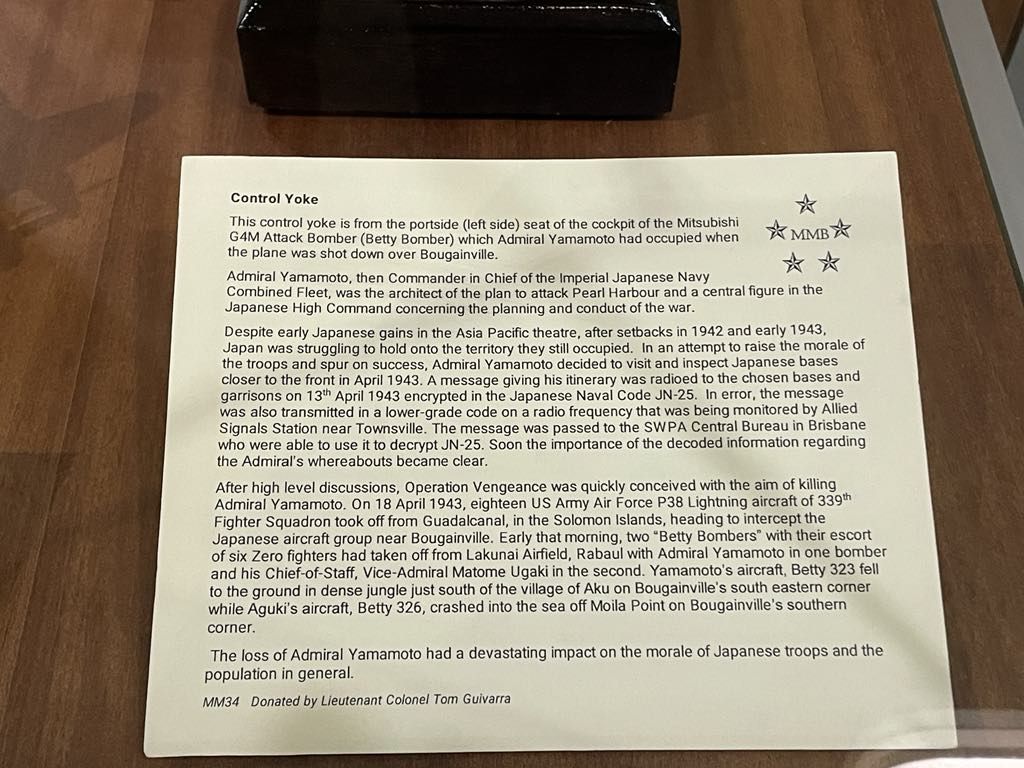 Control Yoke
MMB
This control yoke is from the portside (left side) seat of the cockpit of the Mitsubishi
G4M Attack Bomber (Betty Bomber) which Admiral Yamamoto had occupied when
the plane was shot down over Bougainville.
Admiral Yamamoto, then Commander in Chief of the Imperial Japanese Navy
Combined Fleet, was the architect of the plan to attack Pearl Harbour and a central figure in the
Japanese High Command concerning the planning and conduct of the war.
Despite early Japanese gains in the Asia Pacific theatre, after setbacks in 1942 and early 1943,
Japan was struggling to hold onto the territory they still occupied. In an attempt to raise the morale of
the troops and spur on success, Admiral Yamamoto decided to visit and inspect Japanese bases
closer to the front in April 1943. A message giving his itinerary was radioed to the chosen bases and
garrisons on 13th April 1943 encrypted in the Japanese Naval Code JN-25. In error, the message
was also transmitted in a lower-grade code on a radio frequency that was being monitored by Allied
Signals Station near Townsville. The message was passed to the SWPA Central Bureau in Brisbane
who were able to use it to decrypt JN-25. Soon the importance of the decoded information regarding
the Admiral's whereabouts became clear.
After high level discussions, Operation Vengeance was quickly conceived with the aim of killing
Admiral Yamamoto. On 18 April 1943, eighteen US Army Air Force P38 Lightning aircraft of 339th
Fighter Squadron took off from Guadalcanal, in the Solomon Islands, heading to intercept the
Japanese aircraft group near Bougainville. Early that morning, two "Betty Bombers" with their escort
of six Zero fighters had taken off from Lakunai Airfield, Rabaul with Admiral Yamamoto in one bomber
and his Chief-of-Staff, Vice-Admiral Matome Ugaki in the second. Yamamoto's aircraft, Betty 323 fell
to the ground in dense jungle just south of the village of Aku on Bougainville's south eastern corner
while Aguki's aircraft, Betty 326, crashed into the sea off Moila Point on Bougainville's southern
corner.
The loss of Admiral Yamamoto had a devastating impact on the morale of Japanese troops and the
population in general.
MM34 Donated by Lieutenant Colonel Tom Guivarra